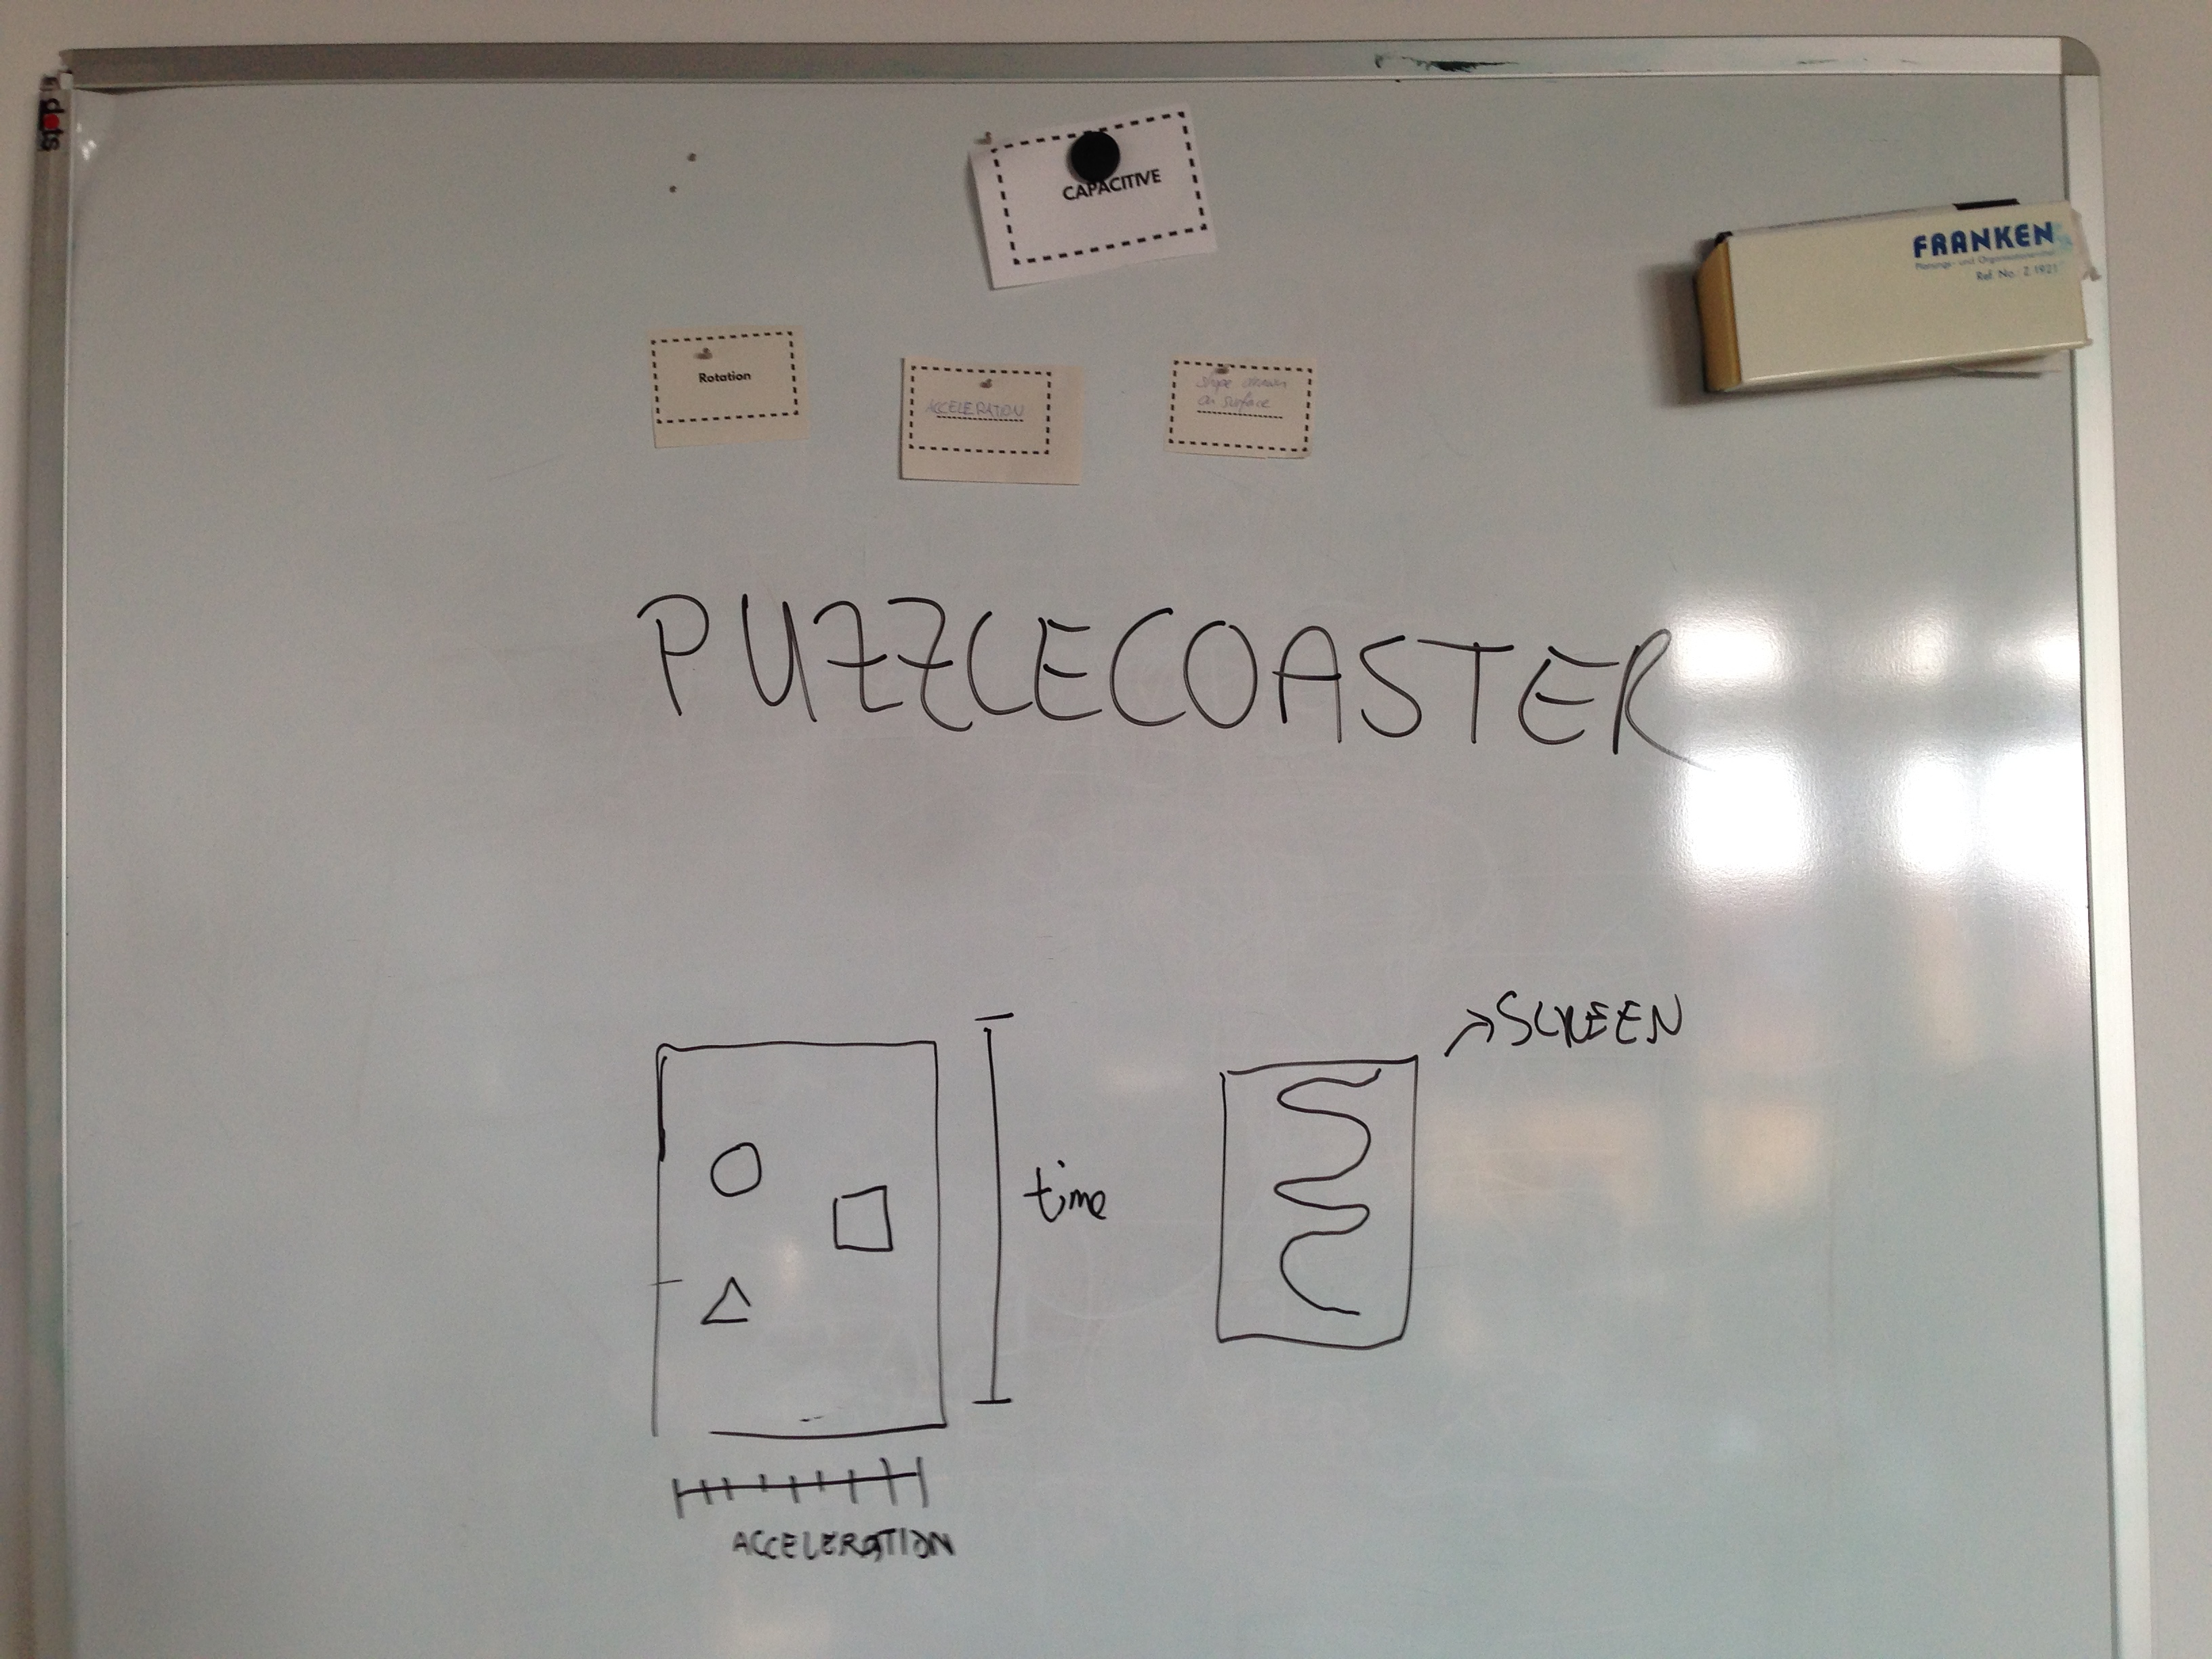 dots
CAPACITIVE
FRANKEN
Planungs- und Organisationsmittel
Ref. No. Z 1921
Rotation
ACCELERATION
Shape drawn
on surface
PUZZLECOASTER
SCREEN
time
ACCELERATION